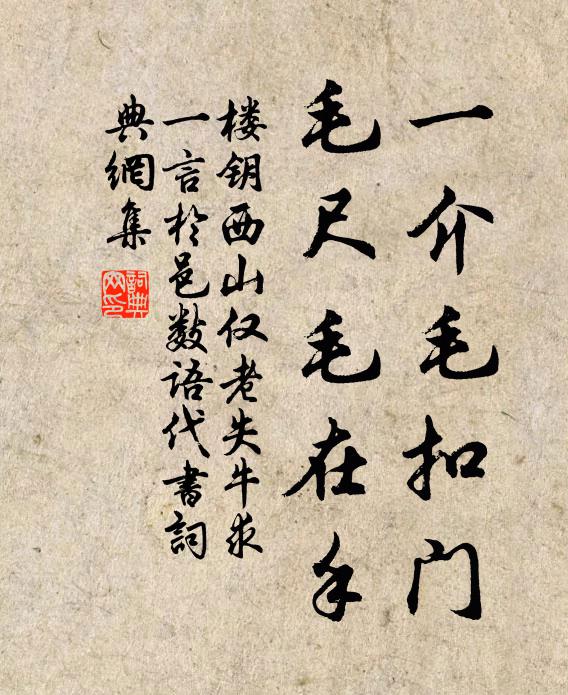 一介毛扣门
毛尺毛在手
楼钥西山仅老失牛求
一言於邑数语代書詞
典網集
詞典
网印